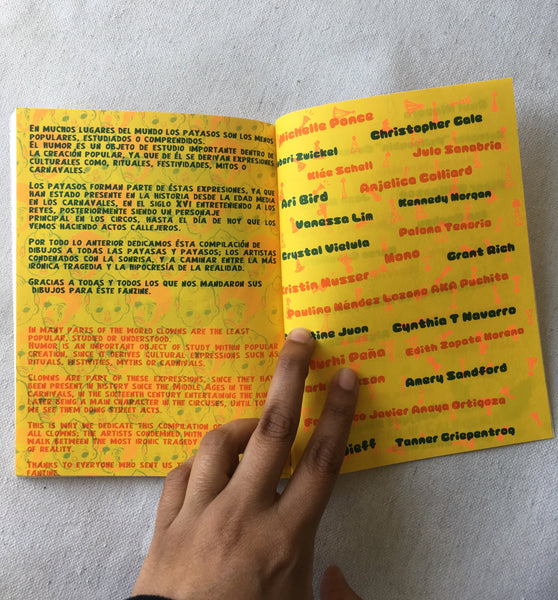 En muchos lugares del mundo los payasos son los menos
populares, estudiados o comprendidos.
El humor es un objeto de estudio importante dentro de
la creación popular, ya que de él se derivan expresiones
culturales como, rituales, festividades, mitos o
carnavales.
Los payasos forman parte de éstas expresiones, ya que
han estado presente en la historia desde la edad media
en los carnavales, en el siglo XVI entreteniendo a los
reyes, posteriormente siendo un personaje
principal en los circos, hasta el día de hoy que los
vemos haciendo actos callejeros.
Por todo lo anterior dedicamos ésta compilación de
dibujos a todas las payasas y payasos; los artistas
condenados con la sonrisa, y a caminar entre la más
irónica tragedia y la hipocresía de la realidad.
Gracias a todas y todos los que nos mandaron sus
dibujos para éste fanzine.
In many parts of the world clowns are the least
popular, studied or understood.
Humor is an important object of study within popular
creation, since it derives cultural expressions such as
rituals, festivities, myths or carnivals.
Clowns are part of these expressions, since they have
been present in history since the middle ages in the
carnivals, in the sixteenth century entertaining the
later being a main character in the circuses, until
we see them doing street acts.
This is why we dedicate this compilation of
all clowns; the artists condemned with
walk between the most ironic tragedy
of reality.
Thanks to everyone who sent us
fanzine.
Michelle Ponce
Christopher Cale
Zuickel
Julo Sanabria
Klée Schell
Anjelica Colliard
Ari Bird
Kennedy Morgan
Vanessa Lim
Paloma Tenorio
Crystal Vielula
Mono
Grant Rich
Kristin Musser
Paulina Méndez Lozano AKA Puchita
Juon
Cynthia T Navarro
Peña
Edith Zapata Moreno
Amery Sandford
Javier Anaya Ortigoza
Tanner Griepentrog